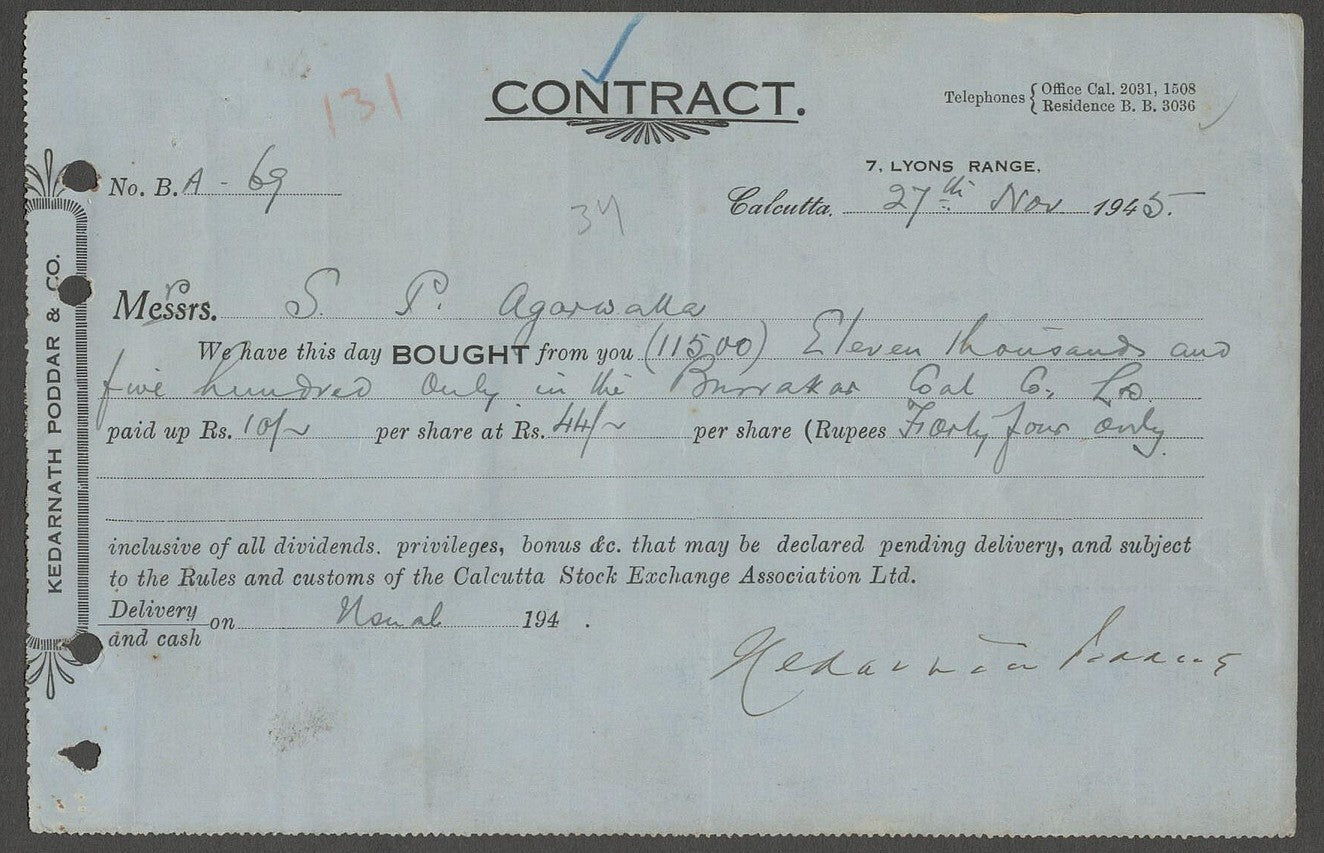 131
CONTRACT.
Telephones { Office Cal. 2031, 1508
Residence B. B. 3036
7, LYONS RANGE,
No. B. A - 69
Calcutta, 27th Nov 1945.
34
KEDARNATH PODDAR & CO.
Messrs. S. P. Agarwalla
We have this day BOUGHT from you (11500) Eleven thousands and
five hundred only in the Burrakar Coal Co. Ld.
paid up Rs. 10/~ per share at Rs. 44/~ per share (Rupees Forty four only
inclusive of all dividends. privileges, bonus &c. that may be declared pending delivery, and subject
to the Rules and customs of the Calcutta Stock Exchange Association Ltd.
Delivery and cash on Usual 194 .
Kedarnath Poddar